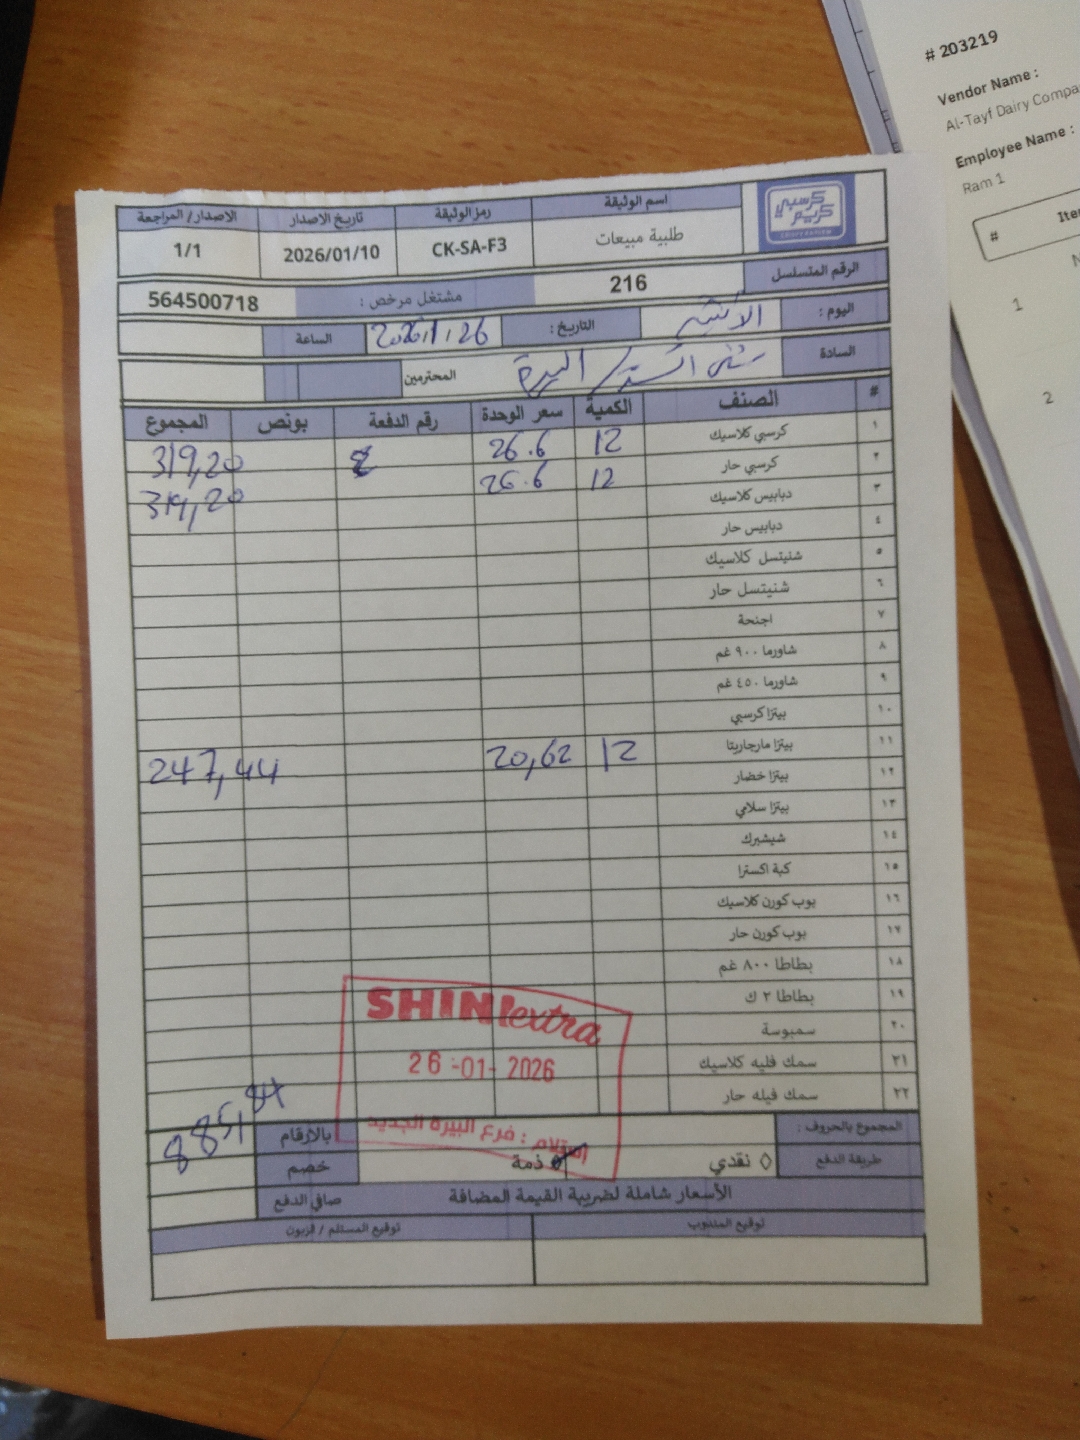 كرسبي كريم
اسم الوثيقة رمز الوثيقة تاريخ الاصدار الاصدار / المراجعة
طلبية مبيعات CK-SA-F3 2026/01/10 1/1
الرقم المتسلسل 216 مشتغل مرخص : 564500718
اليوم : الاثنين التاريخ : 2026/1/26 الساعة
السادة البيرة المحترمين
# الصنف الكمية سعر الوحدة رقم الدفعة بونص المجموع
١ كرسبي كلاسيك 12 26.6 319,20
٢ كرسبي حار 12 26.6 319,20
٣ دبابيس كلاسيك
٤ دبابيس حار
٥ شنيتسل كلاسيك
٦ شنيتسل حار
٧ اجنحة
٨ شاورما ٩٠٠ غم
٩ شاورما ٤٥٠ غم
١٠ بيتزا كرسبي
١١ بيتزا مارجاريتا 12 20,62 247,44
١٢ بيتزا خضار
١٣ بيتزا سلامي
١٤ شيشبرك
١٥ كبة اكسترا
١٦ بوب كورن كلاسيك
١٧ بوب كورن حار
١٨ بطاطا ٨٠٠ غم
١٩ بطاطا ٢ ك
٢٠ سمبوسة
٢١ سمك فليه كلاسيك
٢٢ سمك فيله حار
SHINI extra
26-01-2026
استلام : فرع البيرة الجديد
المجموع بالحروف : بالأرقام 885,84
طريقة الدفع ◊ نقدي ◊ ذمة خصم
الأسعار شاملة لضريبة القيمة المضافة صافي الدفع
توقيع المندوب توقيع المستلم / الزبون
# 203219
Vendor Name :
Al-Tayf Dairy Compa
Employee Name :
Ram 1
# Iter
1
2